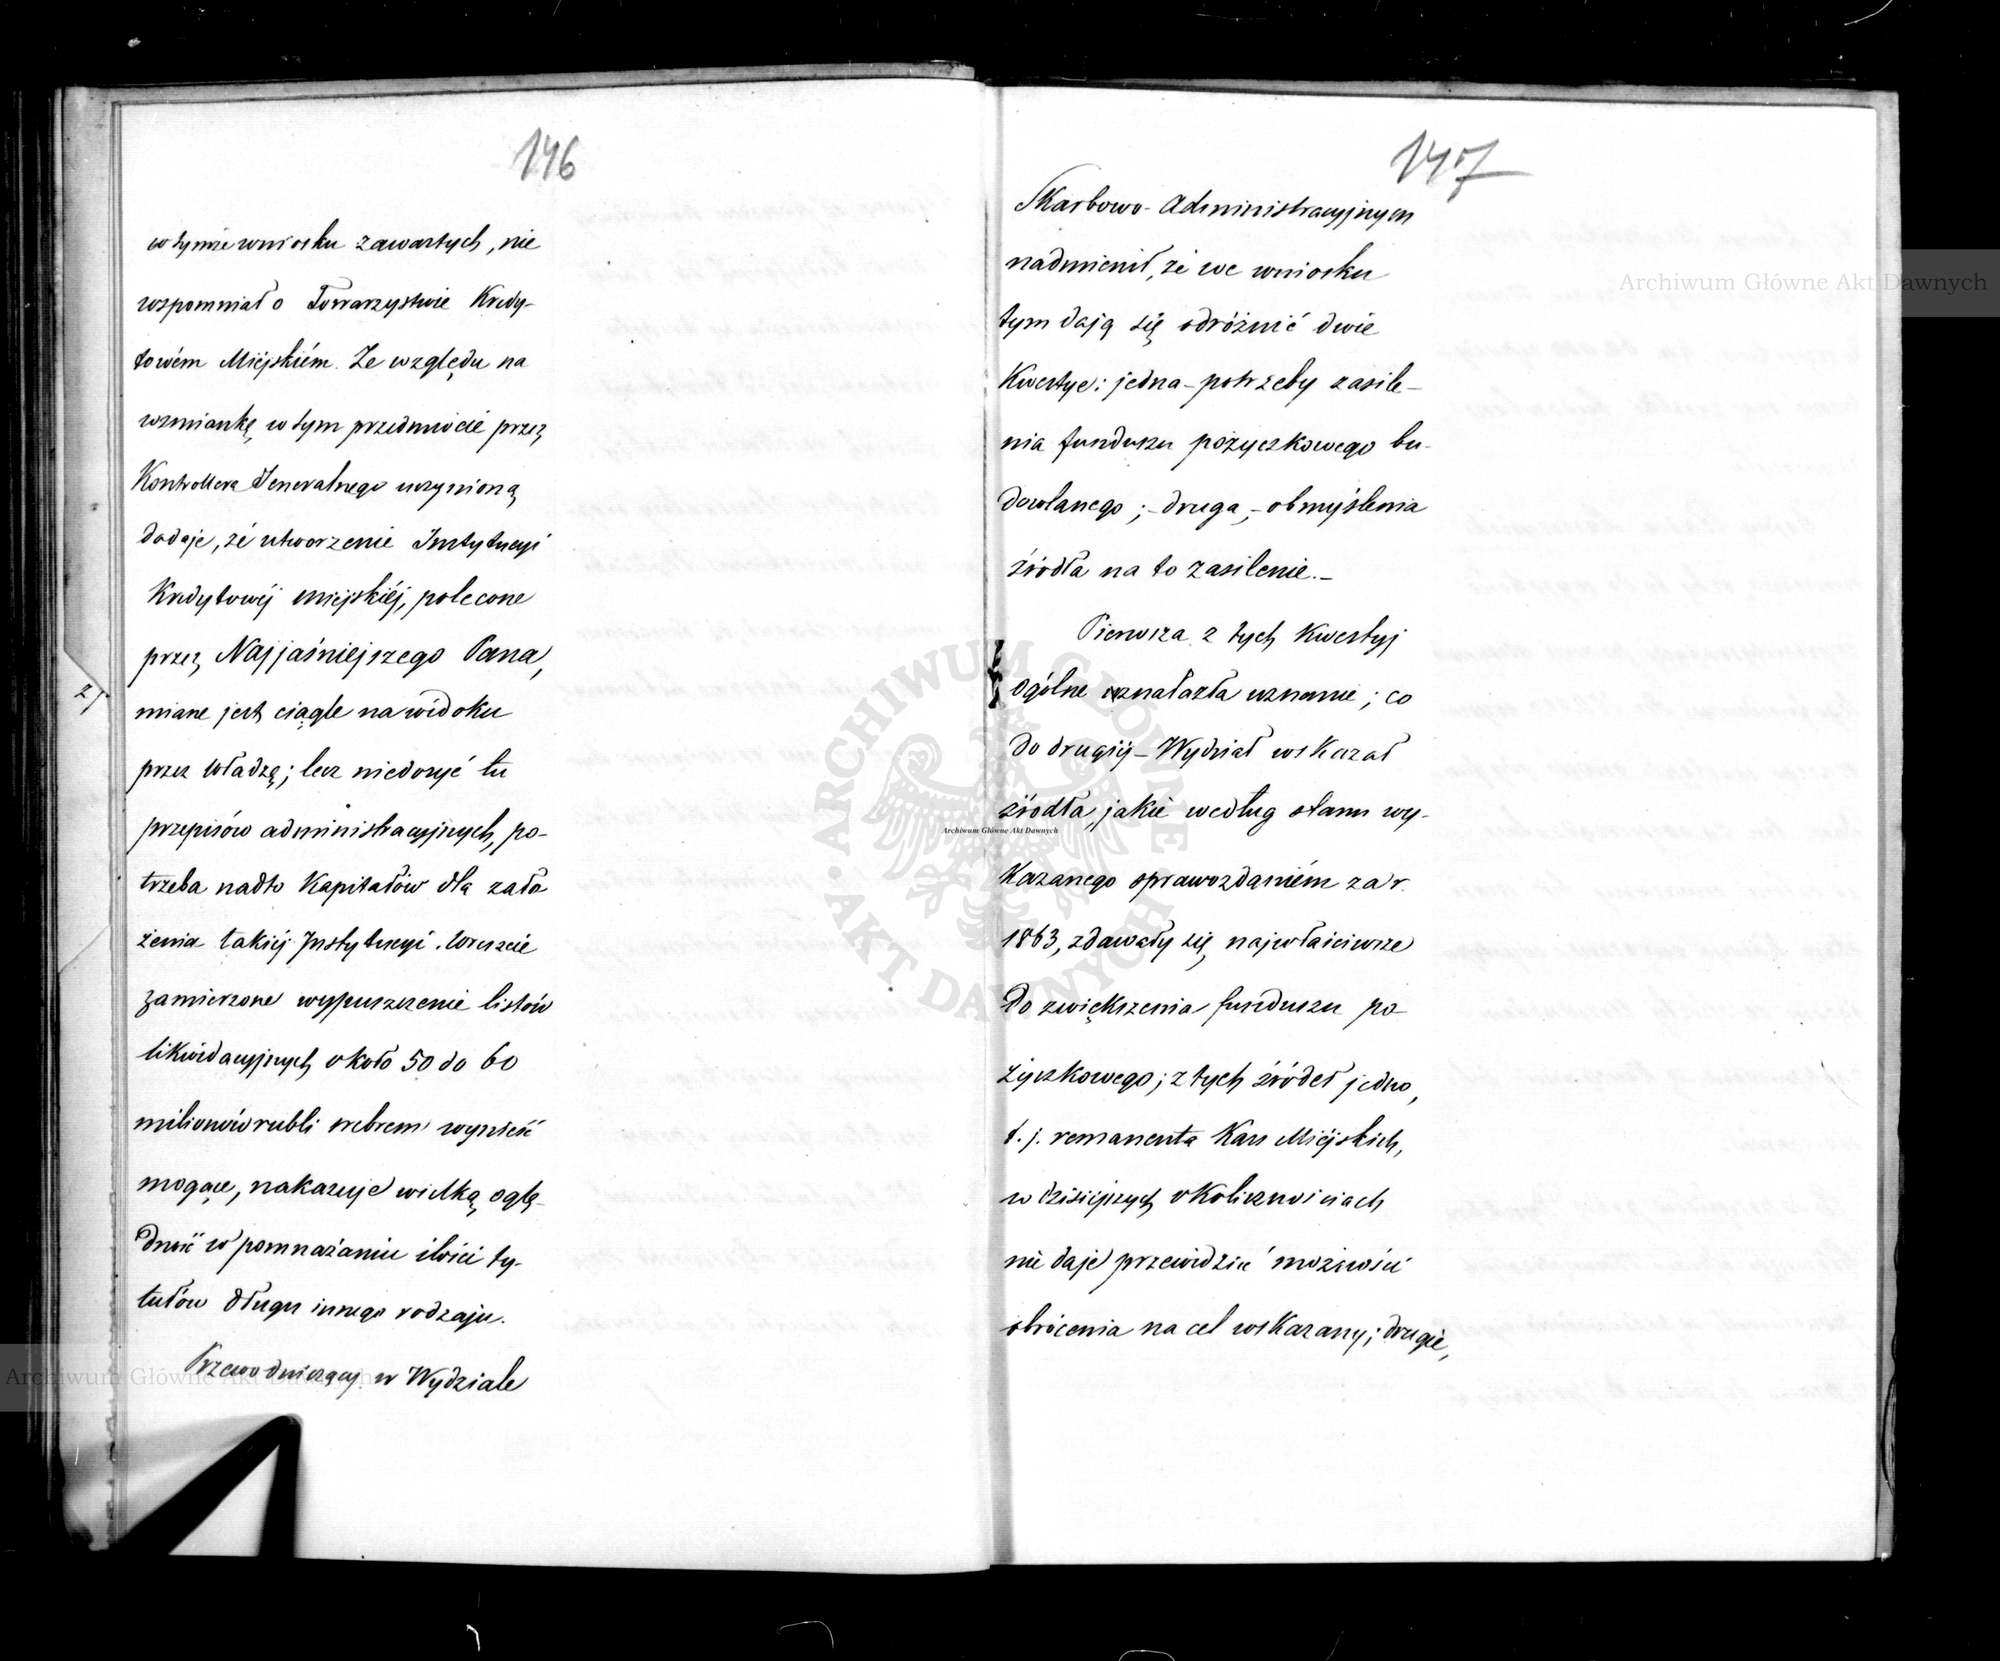 146
w tymże wniosku zawartych, nie
wspomniał o Towarzystwie Kredy-
towém Miéjskiém. Ze względu na
wzmiankę w tym przedmiocie przez
Kontrollera Jeneralnego uczynioną
dodaje, że utworzenie Instytucyi
Kredytowéj miejskiéj, polecone
przez Najjaśniejszego Pana,
miane jest ciągle na widoku
przez Władzę; lecz niedosyć tu
przepisów administracyjnych, po-
trzeba nadto Kapitałów dla zało
żenia takiéj Instytucyi. Wreszcie
zamierzone wypuszczenie listów
likwidacyjnych około 50 do 60
milionów rubli srebrem wynieść
mogące, nakazuje wielką oglę-
dność w pomnażaniu ilości ty-
tułów długu innego rodzaju.
Przewodniczący w Wydziale
147
Skarbowo-Administracyjnym
nadmienił, że we wniosku
tym dają się odróżnić dwie
Kwestye: jedna - potrzeby zasile-
nia funduszu pożyczkowego bu-
dowlanego; - druga, - obmyślenia
źródła na to zasilenie. -
Pierwsza z tych Kwestyj
ogólne znalazła uznanie; co
do drugiéj - Wydział wskazał
źródła, jakie według stanu wy-
Kazanego sprawozdaniém za r.
1863, zdawały się najwłaściwsze
do zwiększenia funduszu po
życzkowego; z tych źródeł jedno,
t. j. remanenta Kass Miéjskich,
w dzisiejszych okolicznościach
nie daje przewidzieć możności
obrócenia na cel wskazany; drugie,
Archiwum Główne Akt Dawnych
Archiwum Główne Akt Dawnych
Archiwum Główne Akt Dawnych
ARCHIWUM GŁÓWNE AKT DAWNYCH